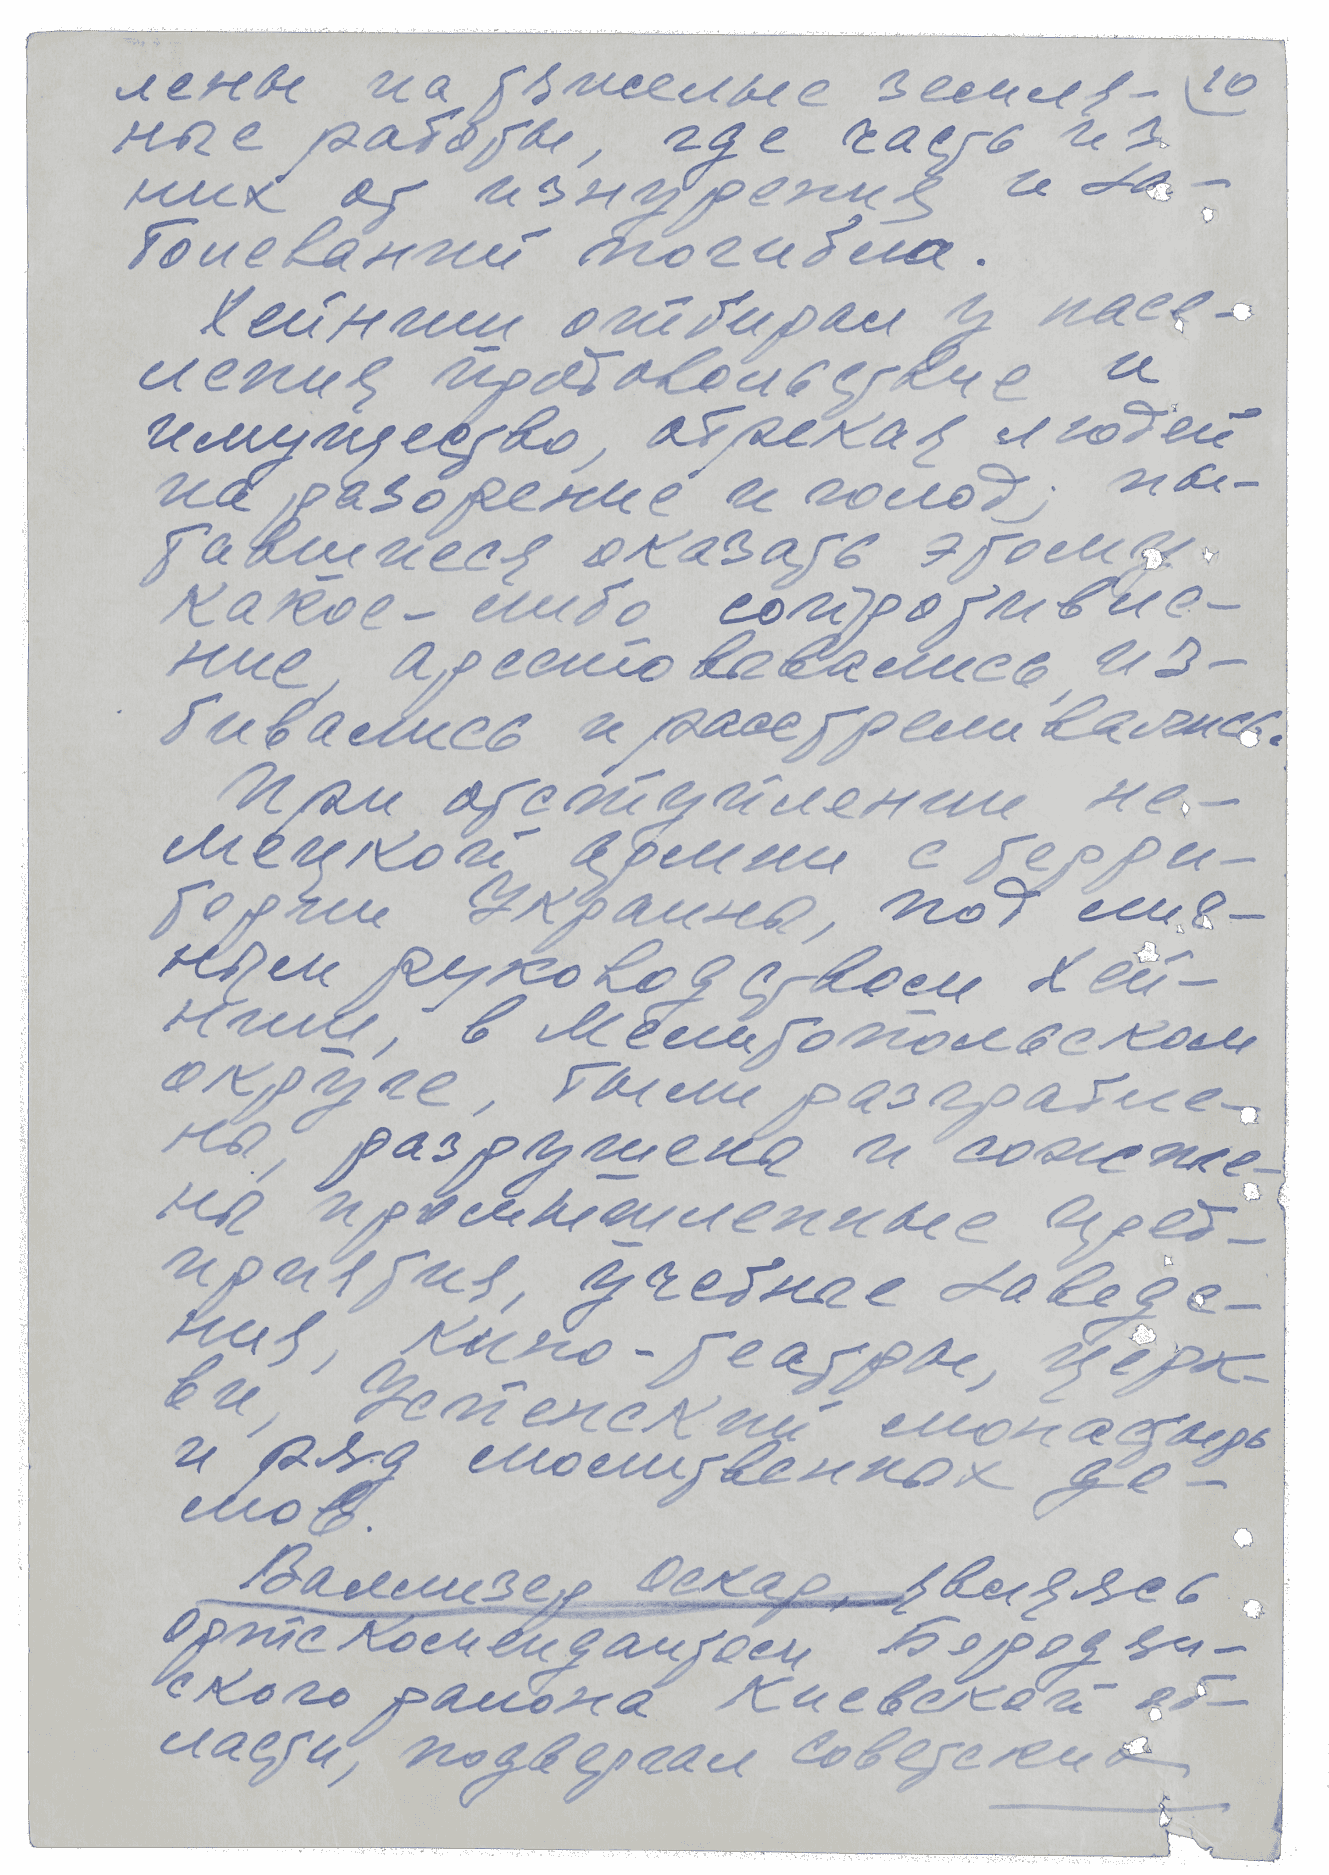 лены на тяжелые земля- 10
ные работы, где часть из
них от изнурения и за-
болеваний погибла.
Хейниш отбирал у насе-
ления продовольствие и
имущество, обрекая людей
на разорение и голод; пы-
тавшиеся оказать этому
какое-либо сопротивле-
ние, арестовывались, из-
бивались и расстреливались.
При отступлении не-
мецкой армии с терри-
тории Украины, под глав-
ным руководством Хей-
ниш, в Мелитопольском
округе, были разграбле-
ны, разрушены и сожже-
ны промышленные пред-
приятия, учебные заведе-
ния, кино-театры, церк-
ви, Успенский монастырь
и ряд молитвенных до-
мов.
Валлизер Оскар, являясь
ортскомендантом Бородян-
ского района Киевской об-
ласти, подвергал советских